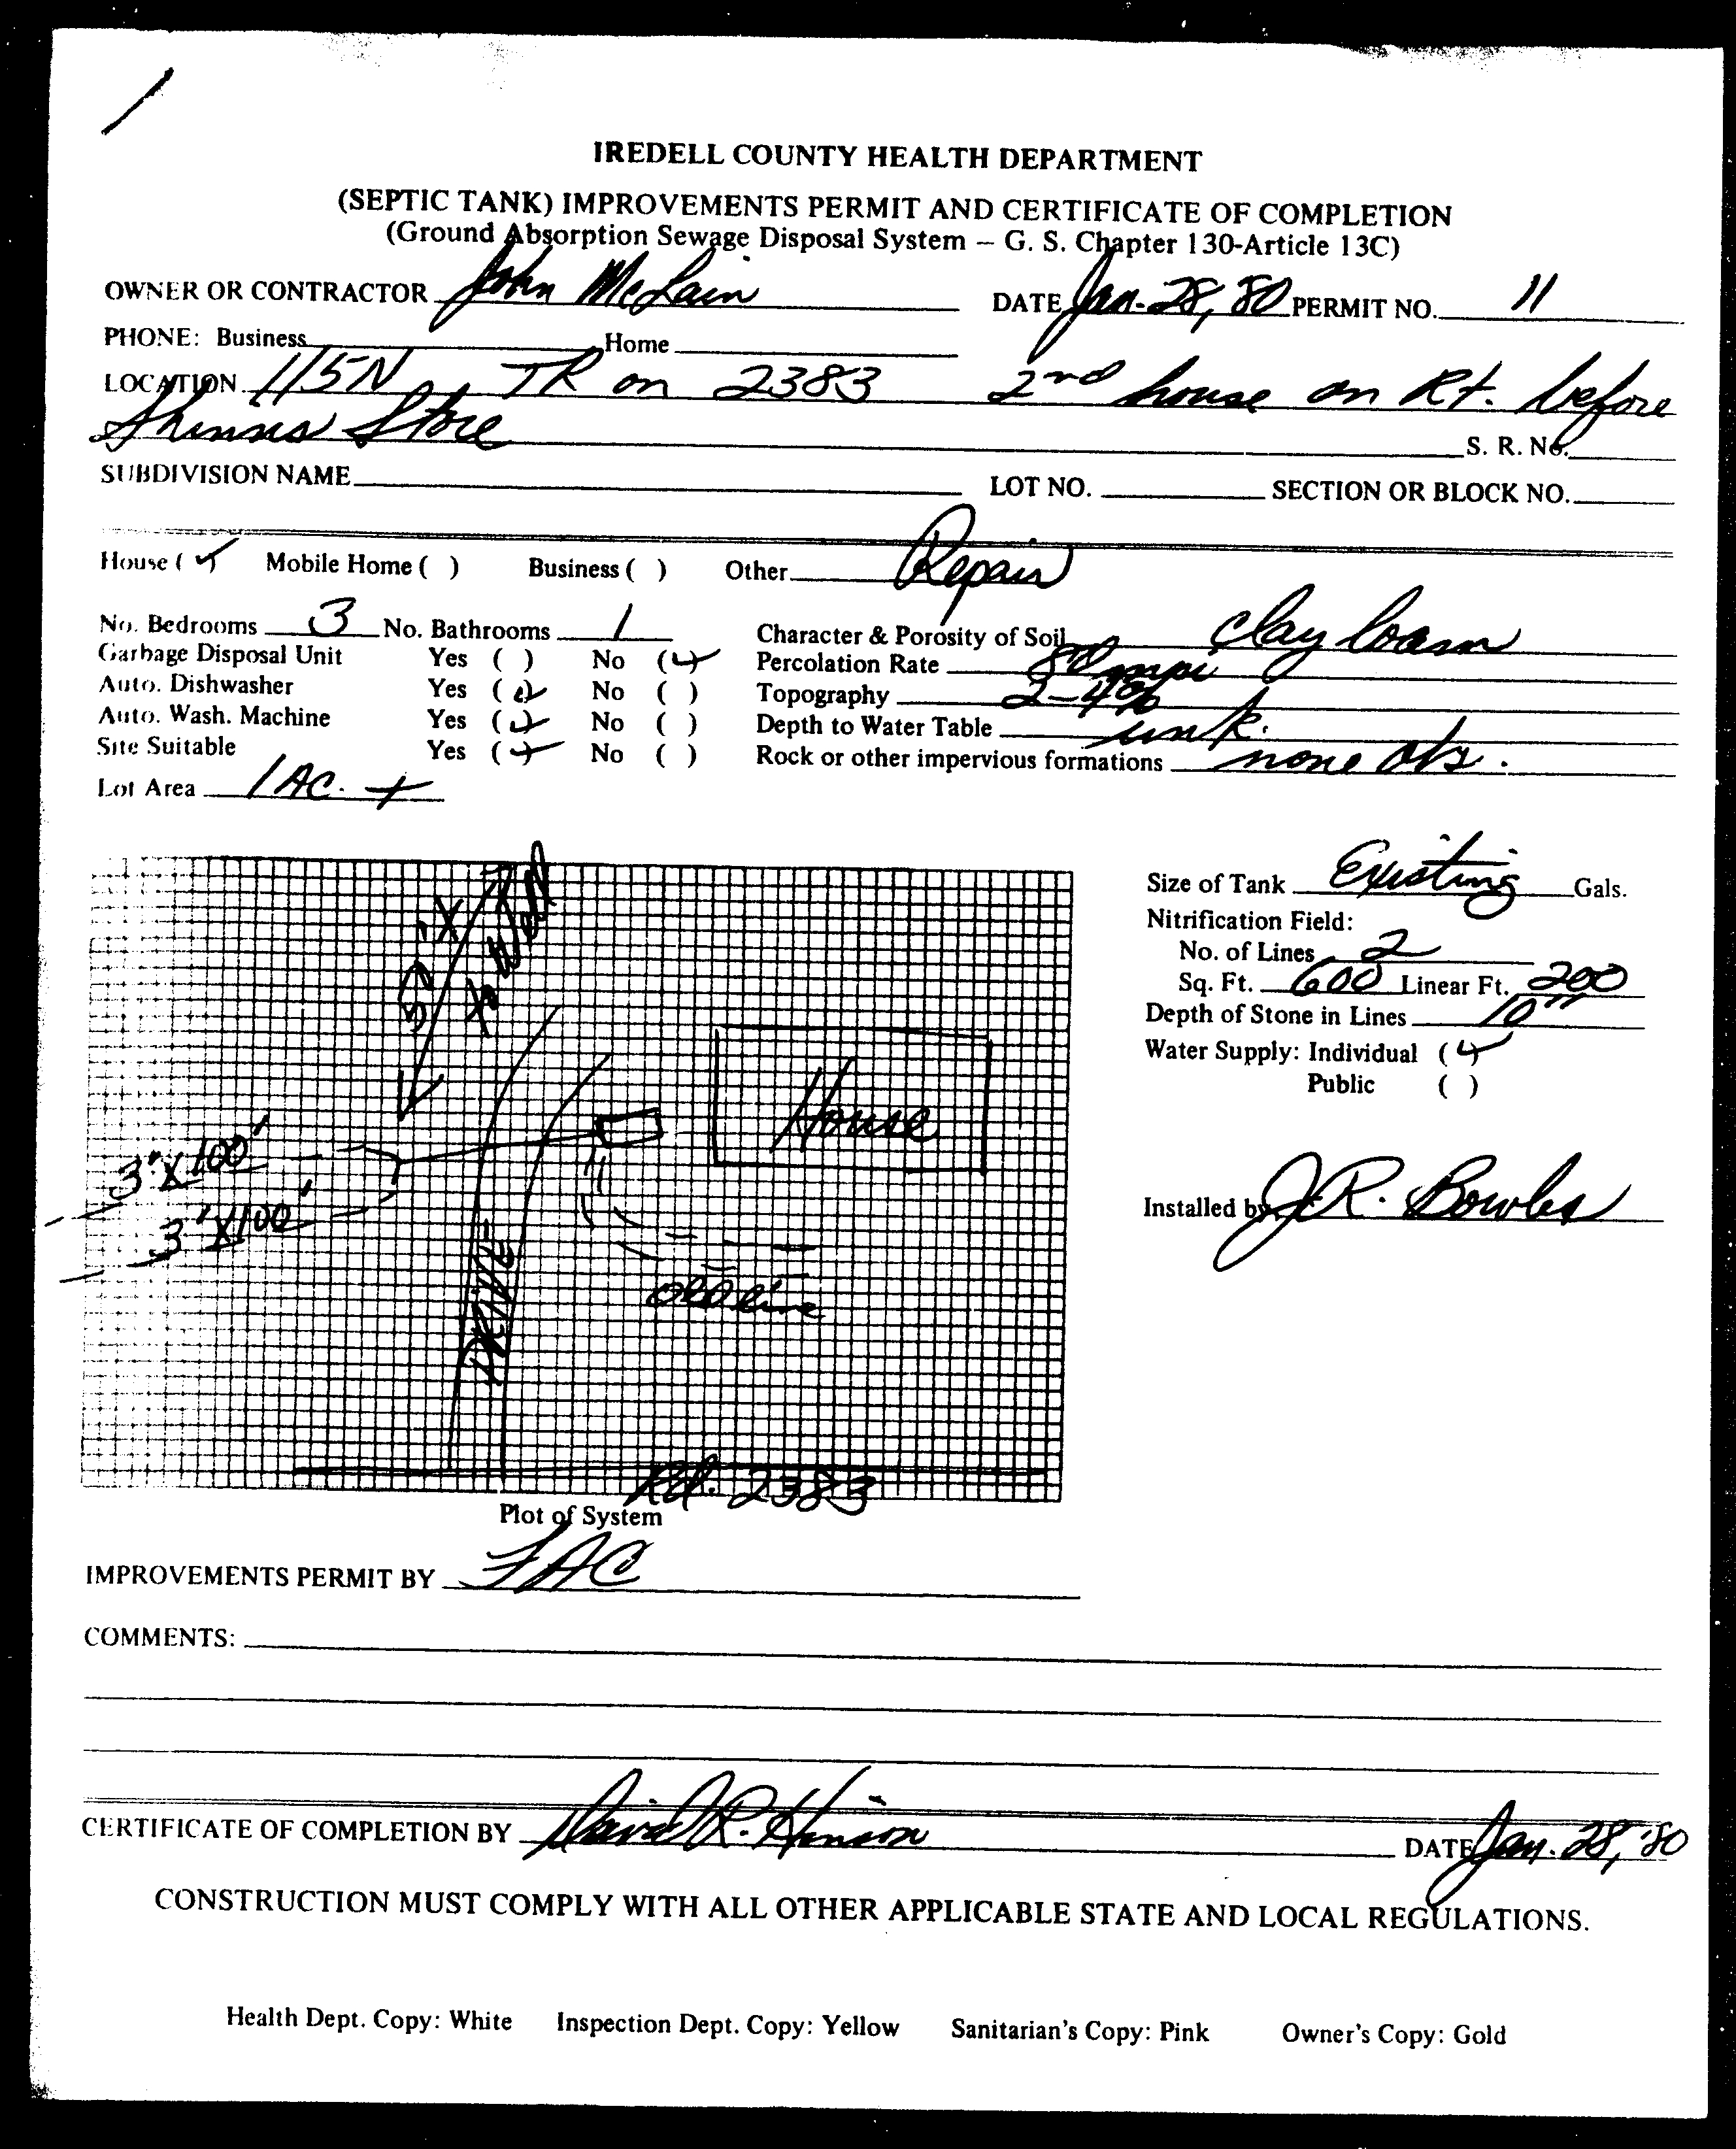 IREDELL COUNTY HEALTH DEPARTMENT
(SEPTIC TANK) IMPROVEMENTS PERMIT AND CERTIFICATE OF COMPLETION
(Ground Absorption Sewage Disposal System – G. S. Chapter 130-Article 13C)
OWNER OR CONTRACTOR John McLain DATE Jan. 28, 80 PERMIT NO. 11
PHONE: Business Home
LOCATION 115N TR on 2383 2nd house on Rt. before
Shinns Store S. R. No.
SUBDIVISION NAME LOT NO. SECTION OR BLOCK NO.
House ( ✓ ) Mobile Home ( ) Business ( ) Other Repair
No. Bedrooms 3 No. Bathrooms 1 Character & Porosity of Soil clay loam
Garbage Disposal Unit Yes ( ) No (✓) Percolation Rate mpi
Auto. Dishwasher Yes (✓) No ( ) Topography 2-4%
Auto. Wash. Machine Yes (✓) No ( ) Depth to Water Table unk.
Site Suitable Yes (✓) No ( ) Rock or other impervious formations none obs.
Lot Area 1 AC. +
Size of Tank Existing Gals.
Nitrification Field:
No. of Lines 2
Sq. Ft. 600 Linear Ft. 200
Depth of Stone in Lines 10"
Water Supply: Individual (✓)
Public ( )
to well
House
3'X100'
3'X100'
DRIVE
old line
Installed by J.R. Bowles
Rd. 2383
Plot of System
IMPROVEMENTS PERMIT BY FAC
COMMENTS:
CERTIFICATE OF COMPLETION BY David R. Hinson DATE Jan. 28, '80
CONSTRUCTION MUST COMPLY WITH ALL OTHER APPLICABLE STATE AND LOCAL REGULATIONS.
Health Dept. Copy: White Inspection Dept. Copy: Yellow Sanitarian's Copy: Pink Owner's Copy: Gold